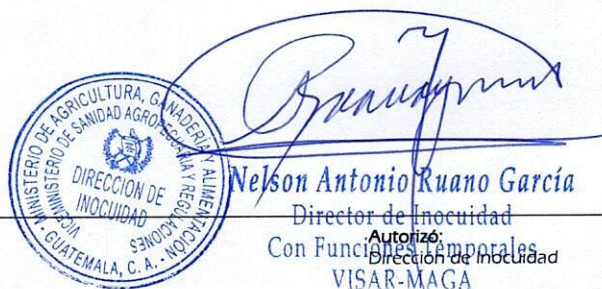 MINISTERIO DE AGRICULTURA, GANADERIA Y ALIMENTACION
VICEMINISTERIO DE SANIDAD AGROPECUARIA Y REGULACIONES
DIRECCION DE
INOCUIDAD
GUATEMALA, C. A.
Nelson Antonio Ruano García
Director de Inocuidad
Autorizó:
Con Funciones Temporales
Dirección de Inocuidad
VISAR-MAGA